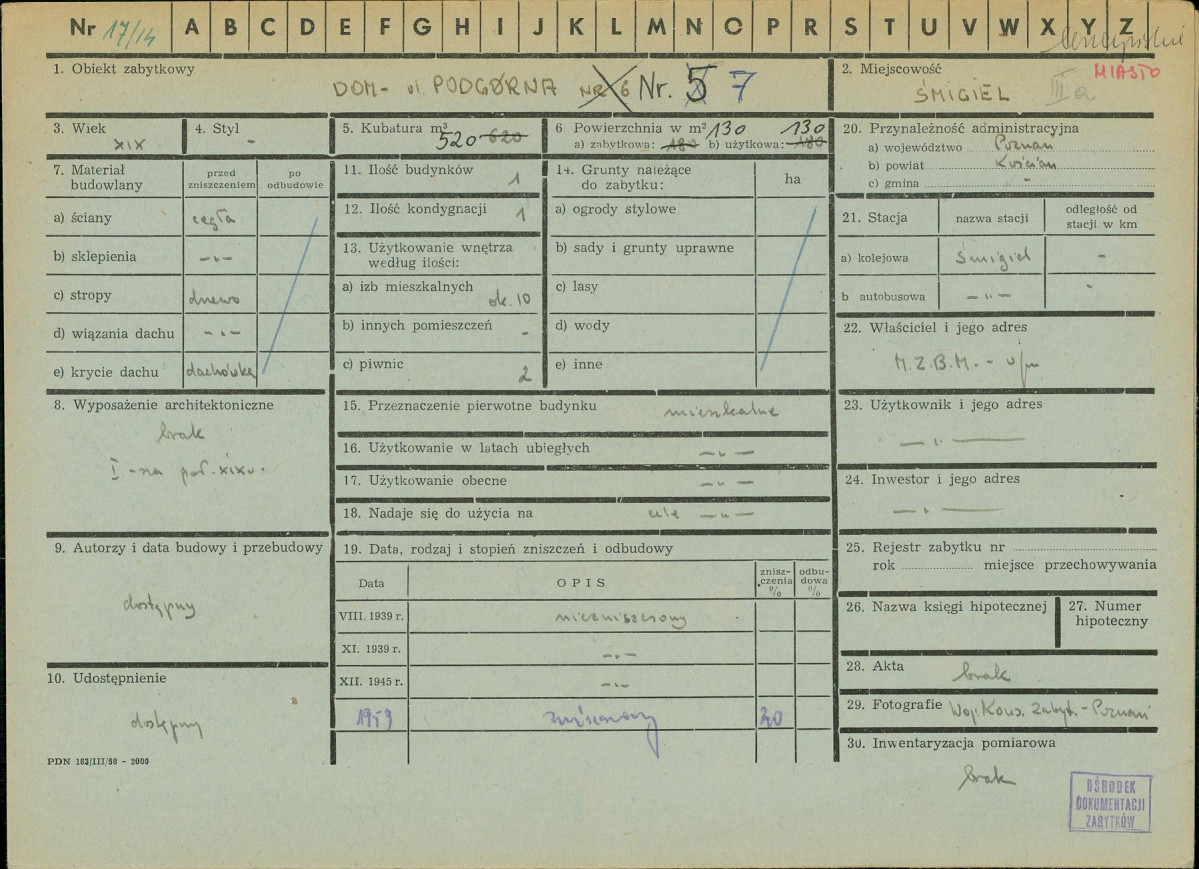 Nr 17/14 A B C D E F G H I J K L M N O P R S T U V W X Y Z
1. Obiekt zabytkowy
DOM - ul. PODGÓRNA NR 6 Nr. 5 7
2. Miejscowość MIASTO
ŚMIGIEL III a
3. Wiek
XIX
4. Styl
-
5. Kubatura m³
520 620
6 Powierzchnia w m² 130 130
a) zabytkowa: 180 b) użytkowa: 180
20. Przynależność administracyjna
a) województwo Poznań
b) powiat Kościan
c) gmina -
7. Materiał budowlany
przed zniszczeniem
po odbudowie
a) ściany cegła
b) sklepienia -"-
c) stropy drewo
d) wiązania dachu -"-
e) krycie dachu dachówka
11. Ilość budynków 1
12. Ilość kondygnacji 1
13. Użytkowanie wnętrza
według ilości:
a) izb mieszkalnych ok. 10
b) innych pomieszczeń -
c) piwnic 2
14. Grunty należące
do zabytku:
ha
a) ogrody stylowe
b) sady i grunty uprawne
c) lasy
d) wody
e) inne
21. Stacja
nazwa stacji
odległość od
stacji w km
a) kolejowa Śmigiel -
b autobusowa -"- -
22. Właściciel i jego adres
M.Z.B.M. -
8. Wyposażenie architektoniczne
brak
I-na poł. XIX w.
15. Przeznaczenie pierwotne budynku mieszkalne
16. Użytkowanie w latach ubiegłych -"-
17. Użytkowanie obecne -"-
18. Nadaje się do użycia na cele -"-
23. Użytkownik i jego adres
-"-
24. Inwestor i jego adres
-"-
9. Autorzy i data budowy i przebudowy
dostępny
19. Data, rodzaj i stopień zniszczeń i odbudowy
Data
OPIS
znisz-
czenia
%
odbu-
dowa
%
VIII. 1939 r. niezniszczony
XI. 1939 r. -"-
XII. 1945 r. -"-
1959 20
25. Rejestr zabytku nr
rok miejsce przechowywania
26. Nazwa księgi hipotecznej
27. Numer
hipoteczny
10. Udostępnienie
dostępny
28. Akta brak
29. Fotografie Woj. Kons. Zabyt. - Poznań
30. Inwentaryzacja pomiarowa
brak
PDN 183/III/58 - 2000
OŚRODEK
DOKUMENTACJI
ZABYTKÓW